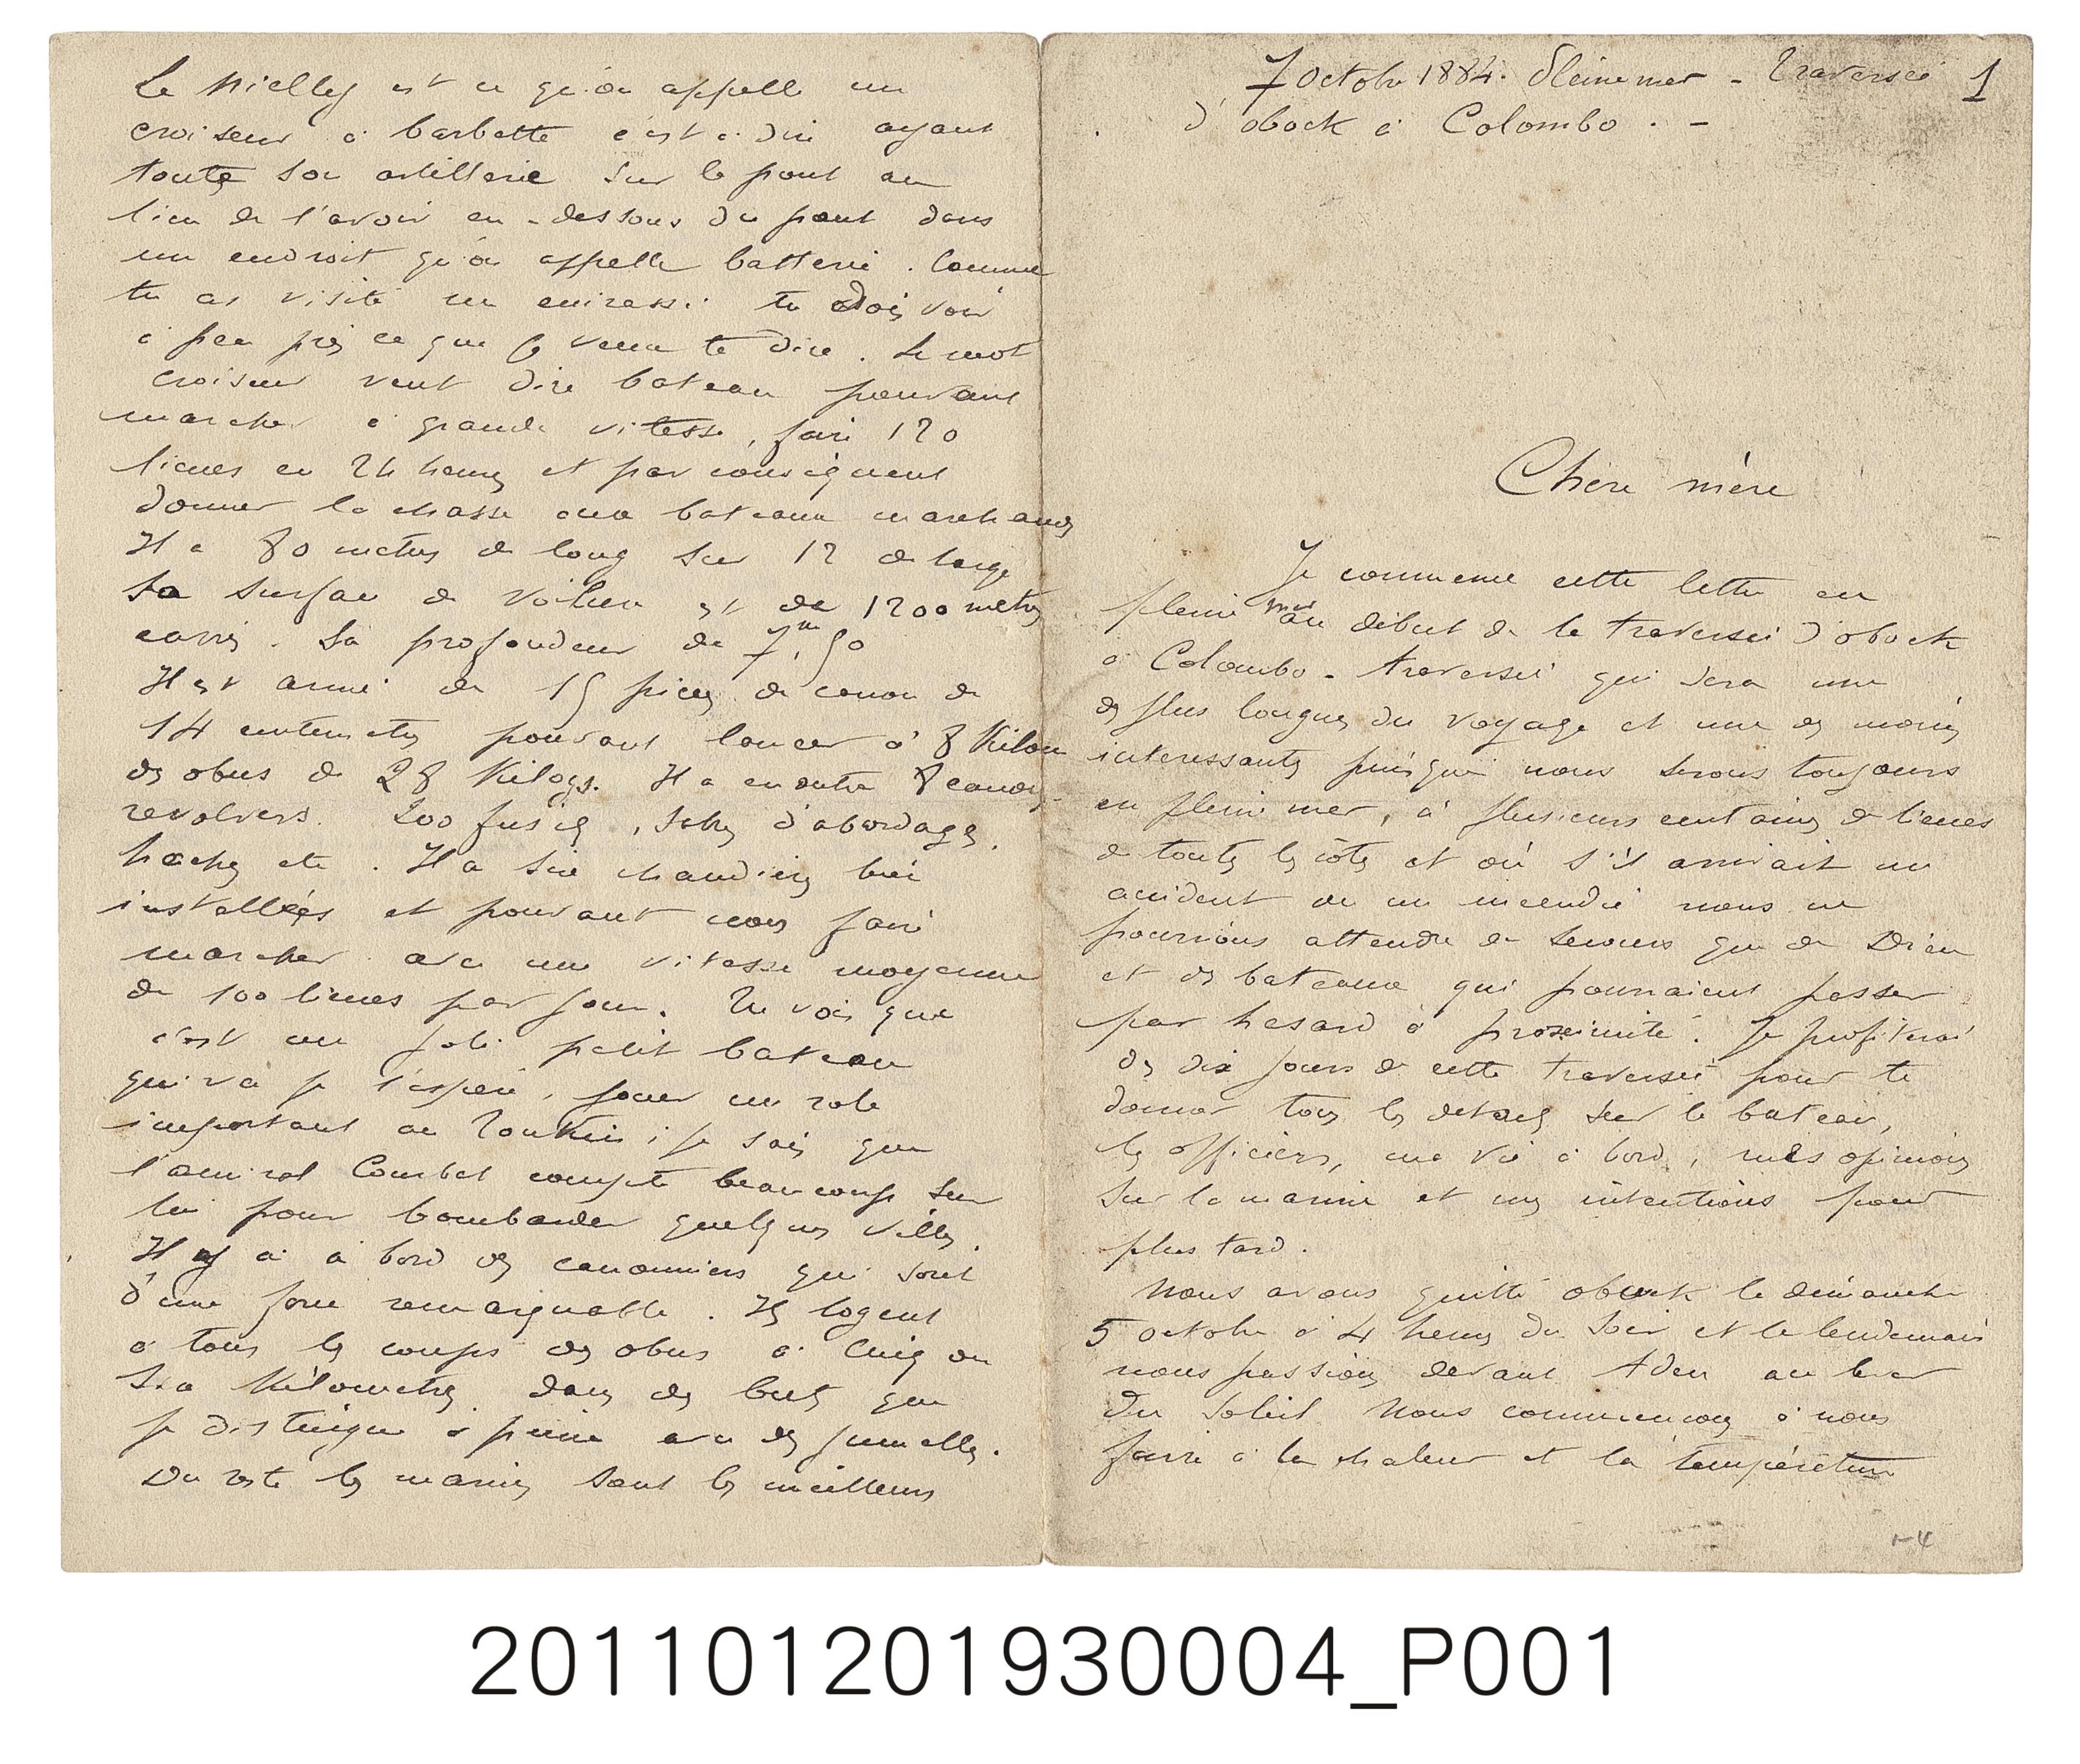 7 octobre 1884. Pleine mer - Traversée
1
d'obock à Colombo. -
Chère mère
Je commence cette lettre en
pleine mer au début de la traversée d'obock
à Colombo - traversée qui sera une
des plus longues du voyage et une des moins
interessantes puisque nous serons toujours
en pleine mer, à plusieurs centaines de lieues
de toutes les côtes et où s'il arrivait un
accident ou un incendie nous ne
pourrions attendre de secours que de Dieu
et des bateaux qui pourraient passer
par hasard à proximité. Je profiterai
des dix jours de cette traversée pour te
donner tous les details sur le bateau,
les officiers, ma vie à bord, mes opinions
sur la marine et mes intentions pour
plus tard.
Nous avons quitté obock le dimanche
5 octobre à 4 heures du soir et le lendemain
nous passions devant Aden au lever
du soleil. Nous commençons à nous
faire à la chaleur et la température
1-4
Le Nielly est ce qu'on appelle un
croiseur à barbette c'est à dire ayant
toute son artillerie sur le pont au
lieu de l'avoir en-dessous du pont dans
un endroit qu'on appelle batterie. Comme
tu as visité un cuirassé tu dois voir
à peu près ce que je veux te dire. Le mot
croiseur veut dire bateau pouvant
marcher à grande vitesse, faire 120
lieues en 24 heures et par conséquent
donner la chasse aux bateaux marchands
Il a 80 metres de long sur 12 de large
Sa surface de voilure est de 1200 metres
carrés. Sa profondeur de 7m,50
Il est armé de 15 pièces de canon de
14 centimetres pouvant lancer à 8 Kilom
des obus de 28 Kilogs. Il a en outre 8 canons-
revolvers. 200 fusils, sabres d'abordage,
haches etc. Il a six chaudières bien
installées et pouvant nous faire
marcher avec une vitesse moyenne
de 100 lieues par jour. Tu vois que
c'est un joli petit bateau
qui va je l'espère, jouer un role
important au Tonkin; je sais que
l'amiral Courbet compte beaucoup sur
lui pour bombarder quelques villes.
Il y a à bord des canonniers qui sont
d'une force remarquable. Ils logent
à tous les coups des obus à cinq ou
six Kilometres dans des buts que
je distingue à peine avec des jumelles.
Du reste les marins sont les meilleurs
201101201930004_P001